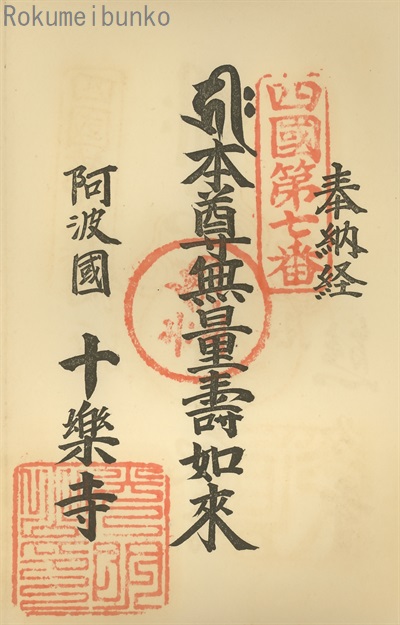 Rokumeibunko
奉納経
四國第七番
本尊無量壽如來
阿波國
十樂寺